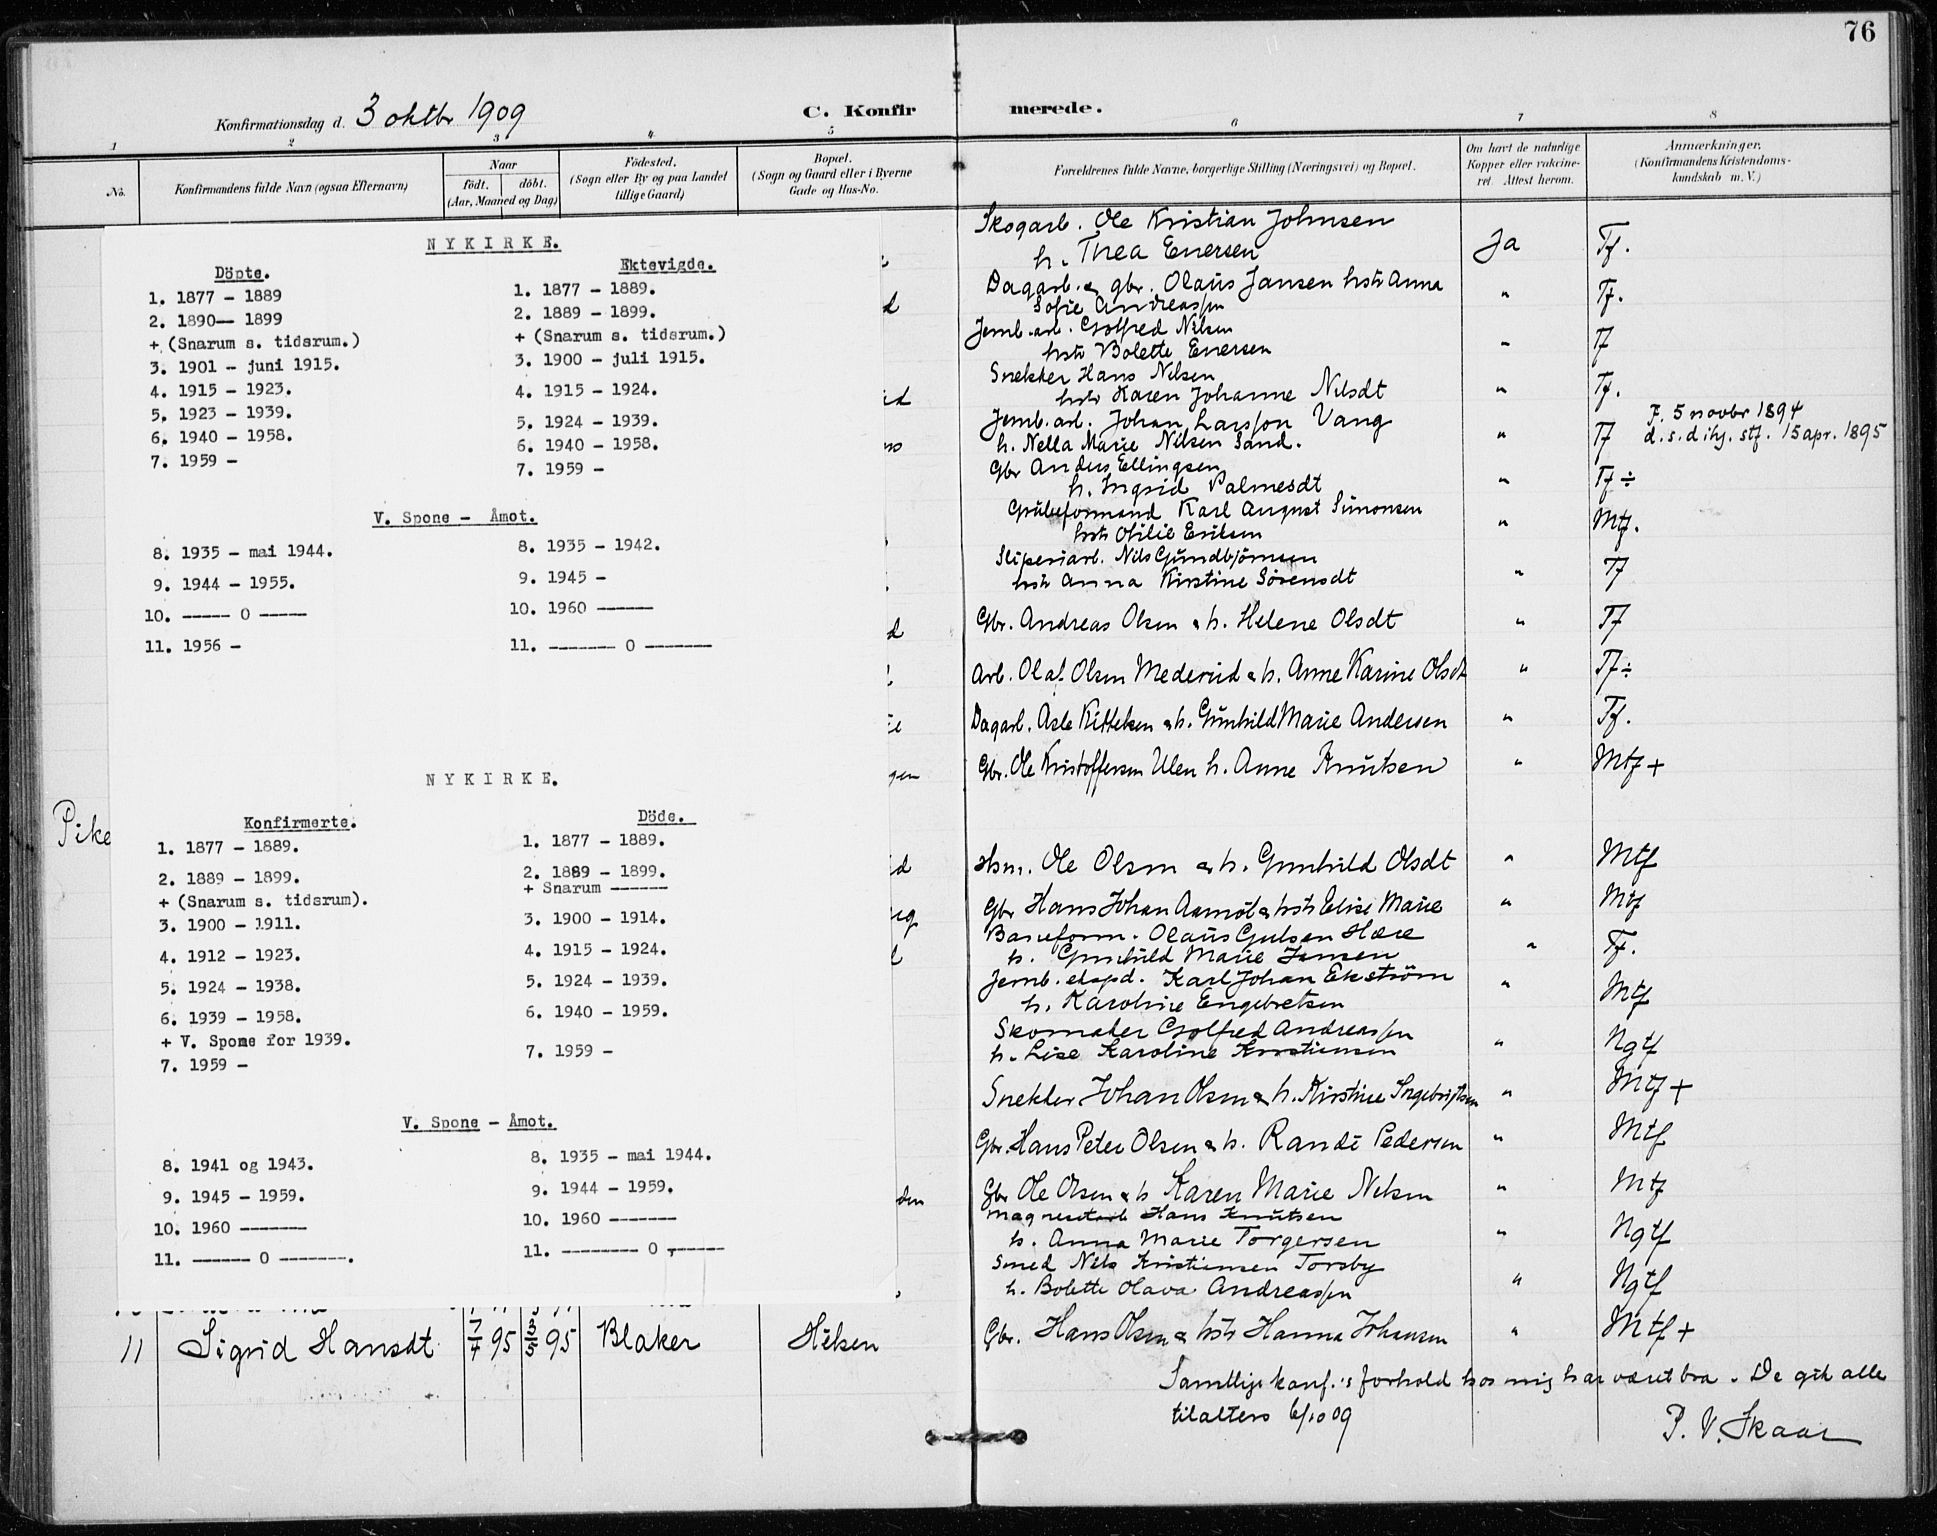 76
Konfirmationsdag d. 3 oktbr 1909
C. Konfir merede.
1 2 3 4 5 6 7 8
No.
Konfirmandens fulde Navn (ogsaa Efternavn)
Naar
födt. döbt.
(Aar, Maaned og Dag)
Födested.
(Sogn eller By og paa Landet
tillige Gaard)
Bopæl.
(Sogn og Gaard eller i Byerne
Gade og Hus-No.
Forældrenes fulde Navne, borgerlige Stilling (Næringsvei) og Bopæl.
Om havt de naturlige
Kopper eller vakcine-
ret. Attest herom.
Anmærkninger.
(Konfirmandens Kristendoms-
kundskab m. V.)
NYKIRKE.
Döpte.
1. 1877 - 1889
2. 1890-- 1899
+ (Snarum s. tidsrum.)
3. 1901 - juni 1915.
4. 1915 - 1923.
5. 1923 - 1939.
6. 1940 - 1958.
7. 1959 -
Ektevigde.
1. 1877 - 1889.
2. 1889 - 1899.
+ (Snarum s. tidsrum.)
3. 1900 - juli 1915.
4. 1915 - 1924.
5. 1924 - 1939.
6. 1940 - 1958.
7. 1959 -
V. Spone - Åmot.
8. 1935 - mai 1944.
9. 1944 - 1955.
10. ----- 0 -----
11. 1956 -
8. 1935 - 1942.
9. 1945 -
10. 1960 ------
11. ------- 0 -------
NYKIRKE.
Konfirmerte.
1. 1877 - 1889.
2. 1889 - 1899.
+ (Snarum s. tidsrum).
3. 1900 - 1911.
4. 1912 - 1923.
5. 1924 - 1938.
6. 1939 - 1958.
+ V. Spone for 1939.
7. 1959 -
Döde.
1. 1877 - 1889.
2. 1889 - 1899.
+ Snarum ------
3. 1900 - 1914.
4. 1915 - 1924.
5. 1924 - 1939.
6. 1940 - 1959.
7. 1959 -
V. Spone - Åmot.
8. 1941 og 1943.
9. 1945 - 1959.
10. 1960 -------
11. ------ 0 -------.
8. 1935 - mai 1944.
9. 1944 - 1959.
10. 1960 -------
11. -------- 0 ------
Pike
11 Sigrid Hansdt 7/4 95 3/5 95 Blaker Hilsen
Skogarb. Ole Kristian Johnsen
h. Thea Enersen Ja Tf.
Dagarb. & gbr. Olaus Jansen hstr Anna
Sofie Andreassen " Tf.
Jernb.arb. Golfred Nilsen
hstr Bolette Enersen " Tf
Snekker Hans Nilsen
hstr Karen Johanne Nilsdt " Tf.
Jernb.arb. Johan Larsson Vang F. 5 novbr 1894
h. Nella Marie Nilsen Sand. " Tf d.s.d ihj. stf. 15 apr. 1895
Gbr Anders Ellingsen
h. Ingrid Palmesdt " Tf ÷
Grubeformand Karl August Simonsen
hstr Otilie Eriksen " Mtf.
Sliperiarb. Nils Gundbjörnsen
hstr Anna Kirstine Sörensdt " Tf
Gbr. Andreas Olsen & h. Helene Olsdt " Tf
Arb. Olaf Olsen Mederud & h. Anne Karine Olsdt " Tf ÷
Dagarb. Asle Kittelsen & h. Gunhild Marie Andersen " Tf.
Gbr. Ole Kristoffersen Ulen h. Anne Knutsen " Mtf +
Hsm. Ole Olsen & h. Gunhild Olsdt " Mtf
Gbr Hans Johan Aamot & hstr Elise Marie " Mtf
Baneform. Olaus Gulsen Hære
h. Gunhild Marie Jensen " Tf.
Jernb. ekspd. Karl Johan Ekström
h. Karoline Engebretsen " Mtf
Skomaker Golfred Andreassen
h. Lise Karoline Kristiansen " Ngtf
Snekker Johan Olsen & h. Kirstine Ingebrigtsen " Mtf +
Gbr. Hans Peter Olsen & h. Randi Pedersen " Mtf
Gbr Ole Olsen & h Karen Marie Nilsen " Mtf
Magnesitarb Hans Knutsen
h. Anna Marie Torgersen " Ngtf
Smed Nils Kristiansen Torsby
h. Bolette Olava Andreassen " Ngtf
Gbr. Hans Olsen & hstr Hanna Johansen " Mtf +
Samtlige konf.'s forhold hos mig har været bra. De gik alle
tilalters 6/10 09
P. V. Skaar